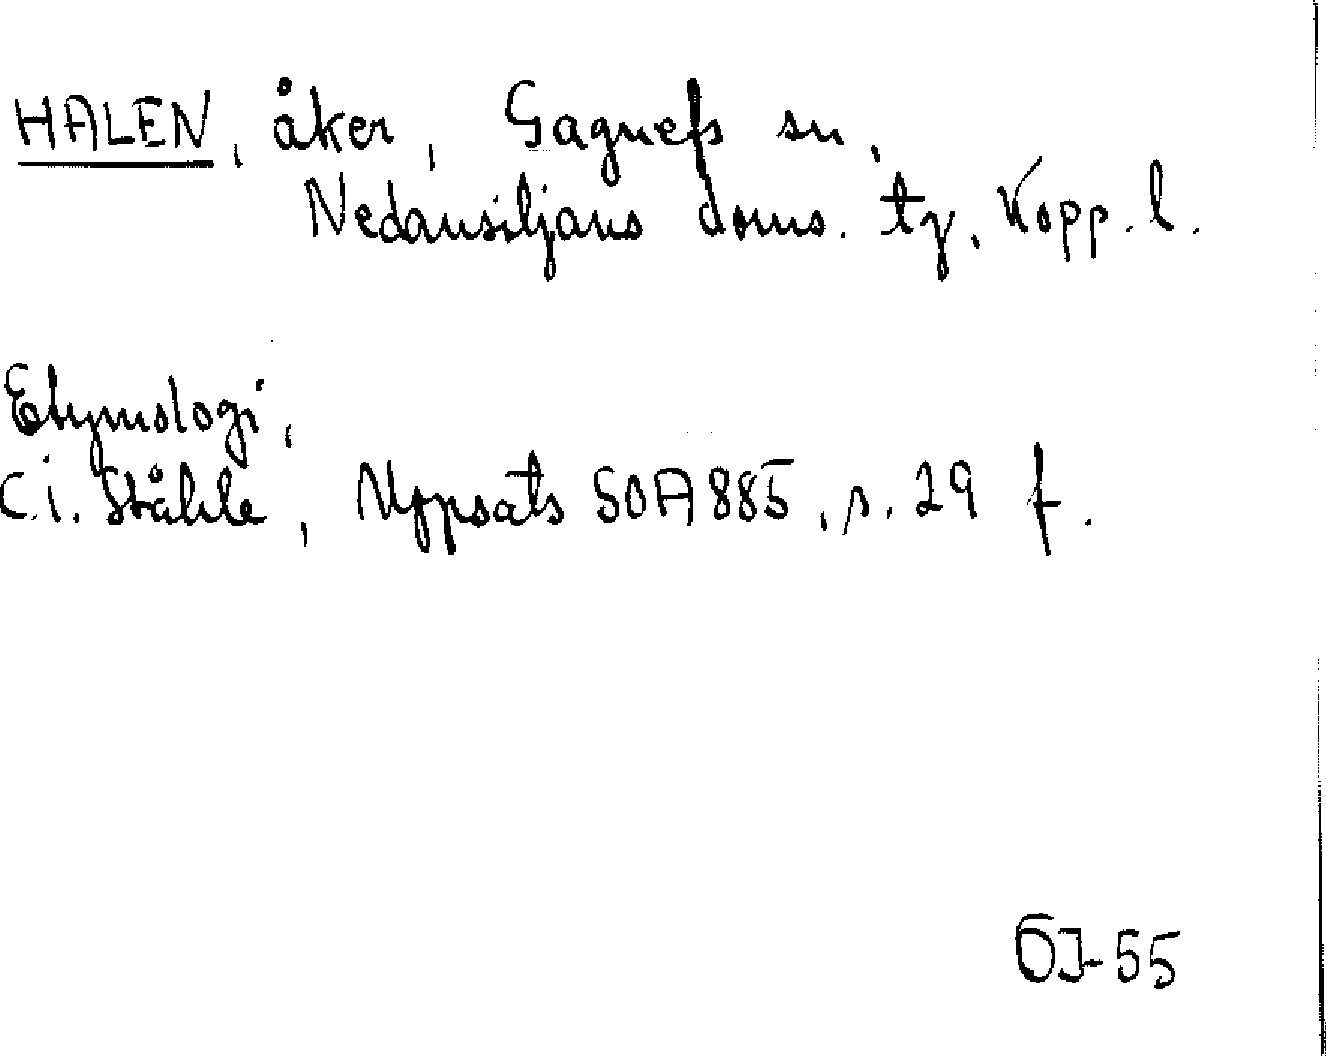 HALEN, åker, Gagnefs sn,
Nedansiljans doms. tg, Kopp. l.
Etymologi,
C.I. Ståhle, Uppsats SOA 885, s. 29 f.
ÖJ-55